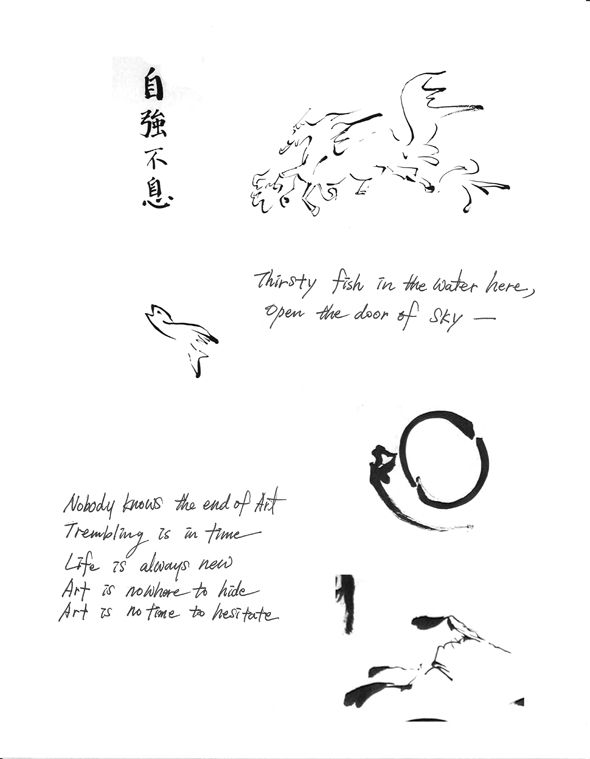 自
強
不
息
Thirsty fish in the water here,
Open the door of sky —
Nobody knows the end of Art
Trembling is in time
Life is always new
Art is nowhere to hide
Art is no time to hesitate